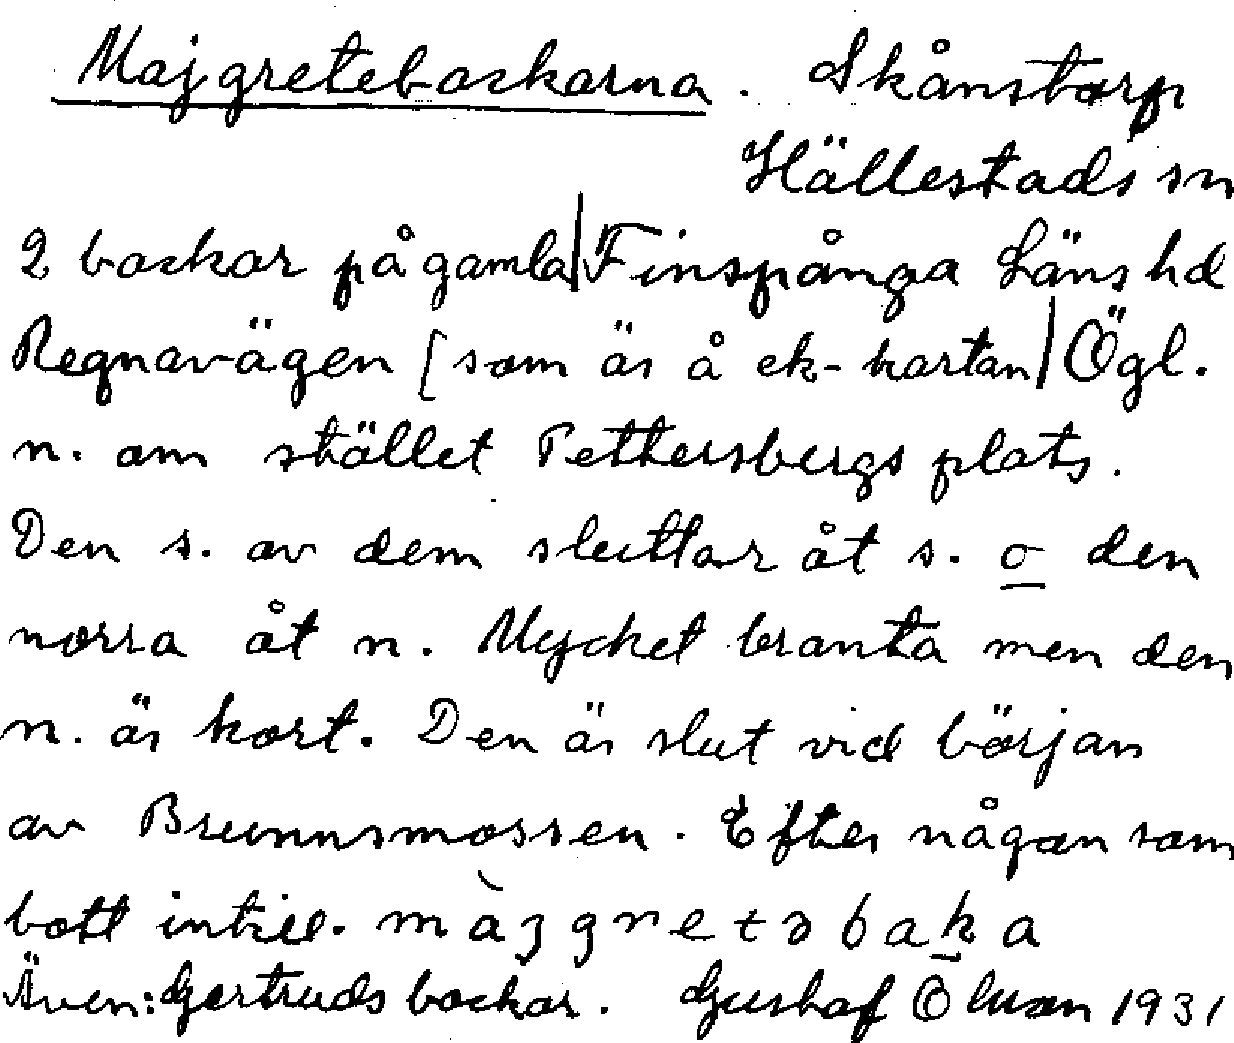 Majgretebackarna. Skånstorp
Hällestads sn
2 backar på gamla Finspånga Läns hd
Regnavägen [som är å ek-kartan Ögl.
n. om stället Pettersbergs plats.
Den s. av dem sluttar åt s. o den
norra åt n. Mycket branta men den
n. är kort. Den är slut vid början
av Brunnsmossen. Efter någon som
bott intill. màjgretəbaka
Även: Gertruds backar. Gustaf 1931